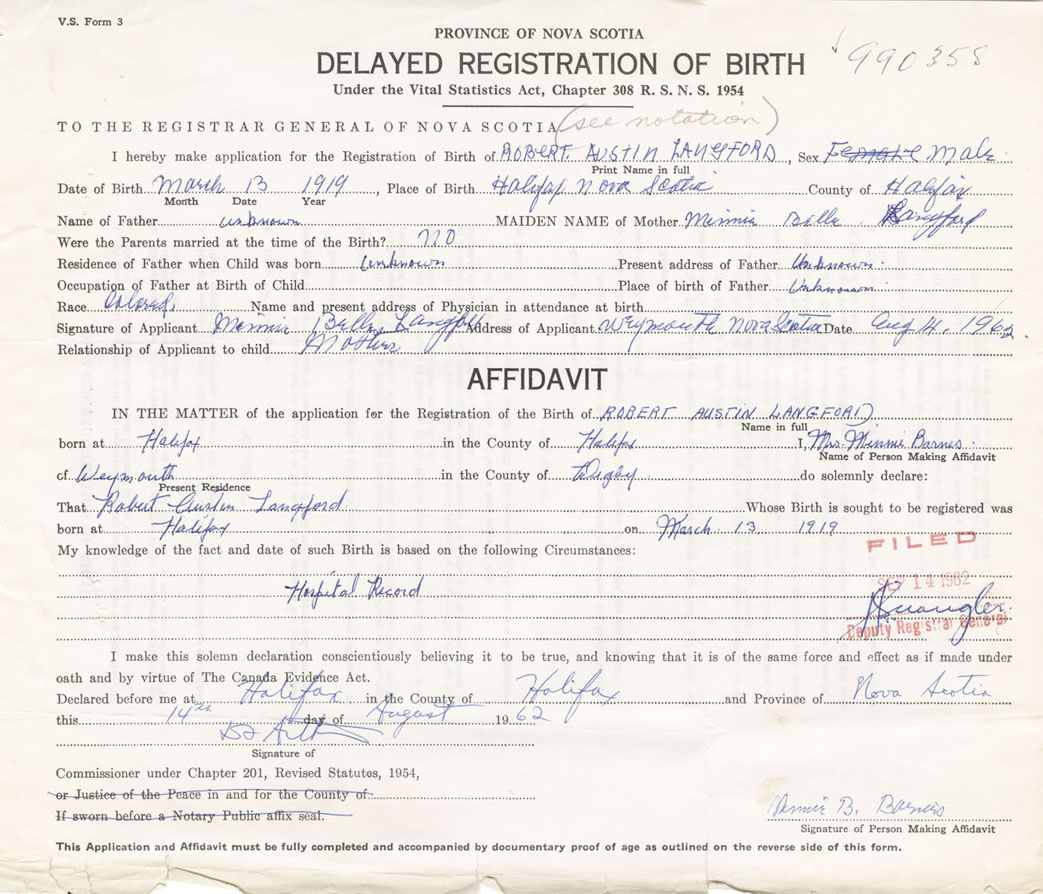 V.S. Form 3
PROVINCE OF NOVA SCOTIA
990358
DELAYED REGISTRATION OF BIRTH
Under the Vital Statistics Act, Chapter 308 R. S. N. S. 1954
TO THE REGISTRAR GENERAL OF NOVA SCOTIA (see notation)
I hereby make application for the Registration of Birth of ROBERT AUSTIN LANGFORD, Sex Female Male
Print Name in full
Date of Birth March 13 1919, Place of Birth Halifax Nova Scotia County of Halifax
Month Date Year
Name of Father unknown MAIDEN NAME of Mother Minnie Belle Langford
Were the Parents married at the time of the Birth? NO
Residence of Father when Child was born Unknown Present address of Father Unknown
Occupation of Father at Birth of Child Place of birth of Father Unknown
Race Colored Name and present address of Physician in attendance at birth
Signature of Applicant Minnie Belle Langford Address of Applicant Weymouth Nova Scotia Date Aug 14, 1962
Relationship of Applicant to child Mother
AFFIDAVIT
IN THE MATTER of the application for the Registration of the Birth of ROBERT AUSTIN LANGFORD
Name in full
born at Halifax in the County of Halifax I, Mrs. Minnie Barnes
Name of Person Making Affidavit
of Weymouth in the County of Digby do solemnly declare:
Present Residence
That Robert Austin Langford Whose Birth is sought to be registered was
born at Halifax on March 13, 1919
My knowledge of the fact and date of such Birth is based on the following Circumstances:
FILED
SEP 14 1962
Hospital Record
Deputy Registrar General
I make this solemn declaration conscientiously believing it to be true, and knowing that it is of the same force and effect as if made under
oath and by virtue of The Canada Evidence Act.
Declared before me at Halifax in the County of Halifax and Province of Nova Scotia
this 14th day of August 1962
Signature of
Commissioner under Chapter 201, Revised Statutes, 1954,
or Justice of the Peace in and for the County of
If sworn before a Notary Public affix seal.
Minnie B. Barnes
Signature of Person Making Affidavit
This Application and Affidavit must be fully completed and accompanied by documentary proof of age as outlined on the reverse side of this form.